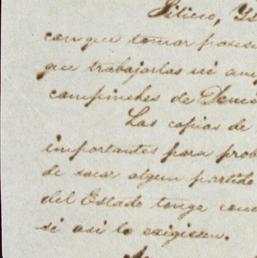 con que tomar poses
que trabajarlas ni
campinches de
Las copias de
importantes para prob
de sacar algun partido
del Estado tenga con
si asi lo exigiesen.